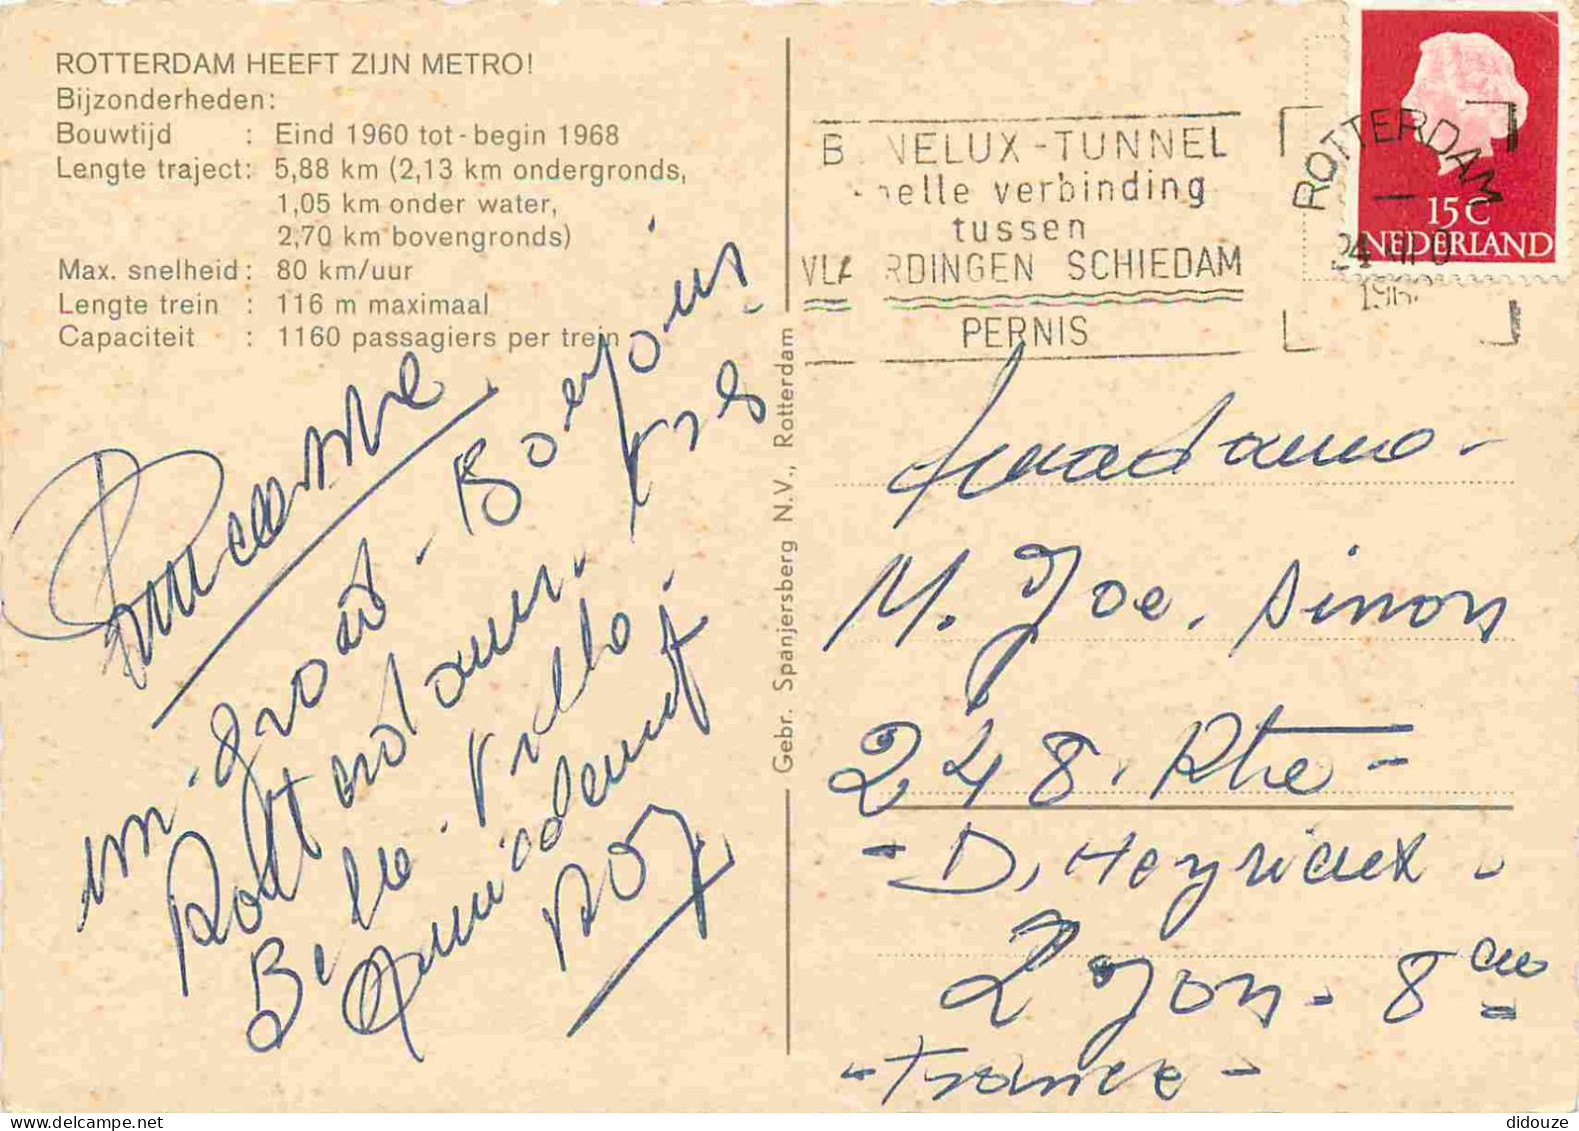 ROTTERDAM HEEFT ZIJN METRO!
Bijzonderheden:
Bouwtijd : Eind 1960 tot - begin 1968
Lengte traject: 5,88 km (2,13 km ondergronds,
1,05 km onder water,
2,70 km bovengronds)
Max. snelheid: 80 km/uur
Lengte trein : 116 m maximaal
Capaciteit : 1160 passagiers per trein
un - Grand - Bonjour
Rotterdam. Très
Belle. Ville.
Amicalement
Gebr. Spanjersberg N.V., Rotterdam
NELUX - TUNNEL
nelle verbinding
tussen
RDINGEN SCHIEDAM
PERNIS
ROTTERDAM
15C
NEDERLAND
Madame -
M. Joe. Sinon
248. Rte -
- D, Heyrieux -
Lyon - 8
- France -
didouze